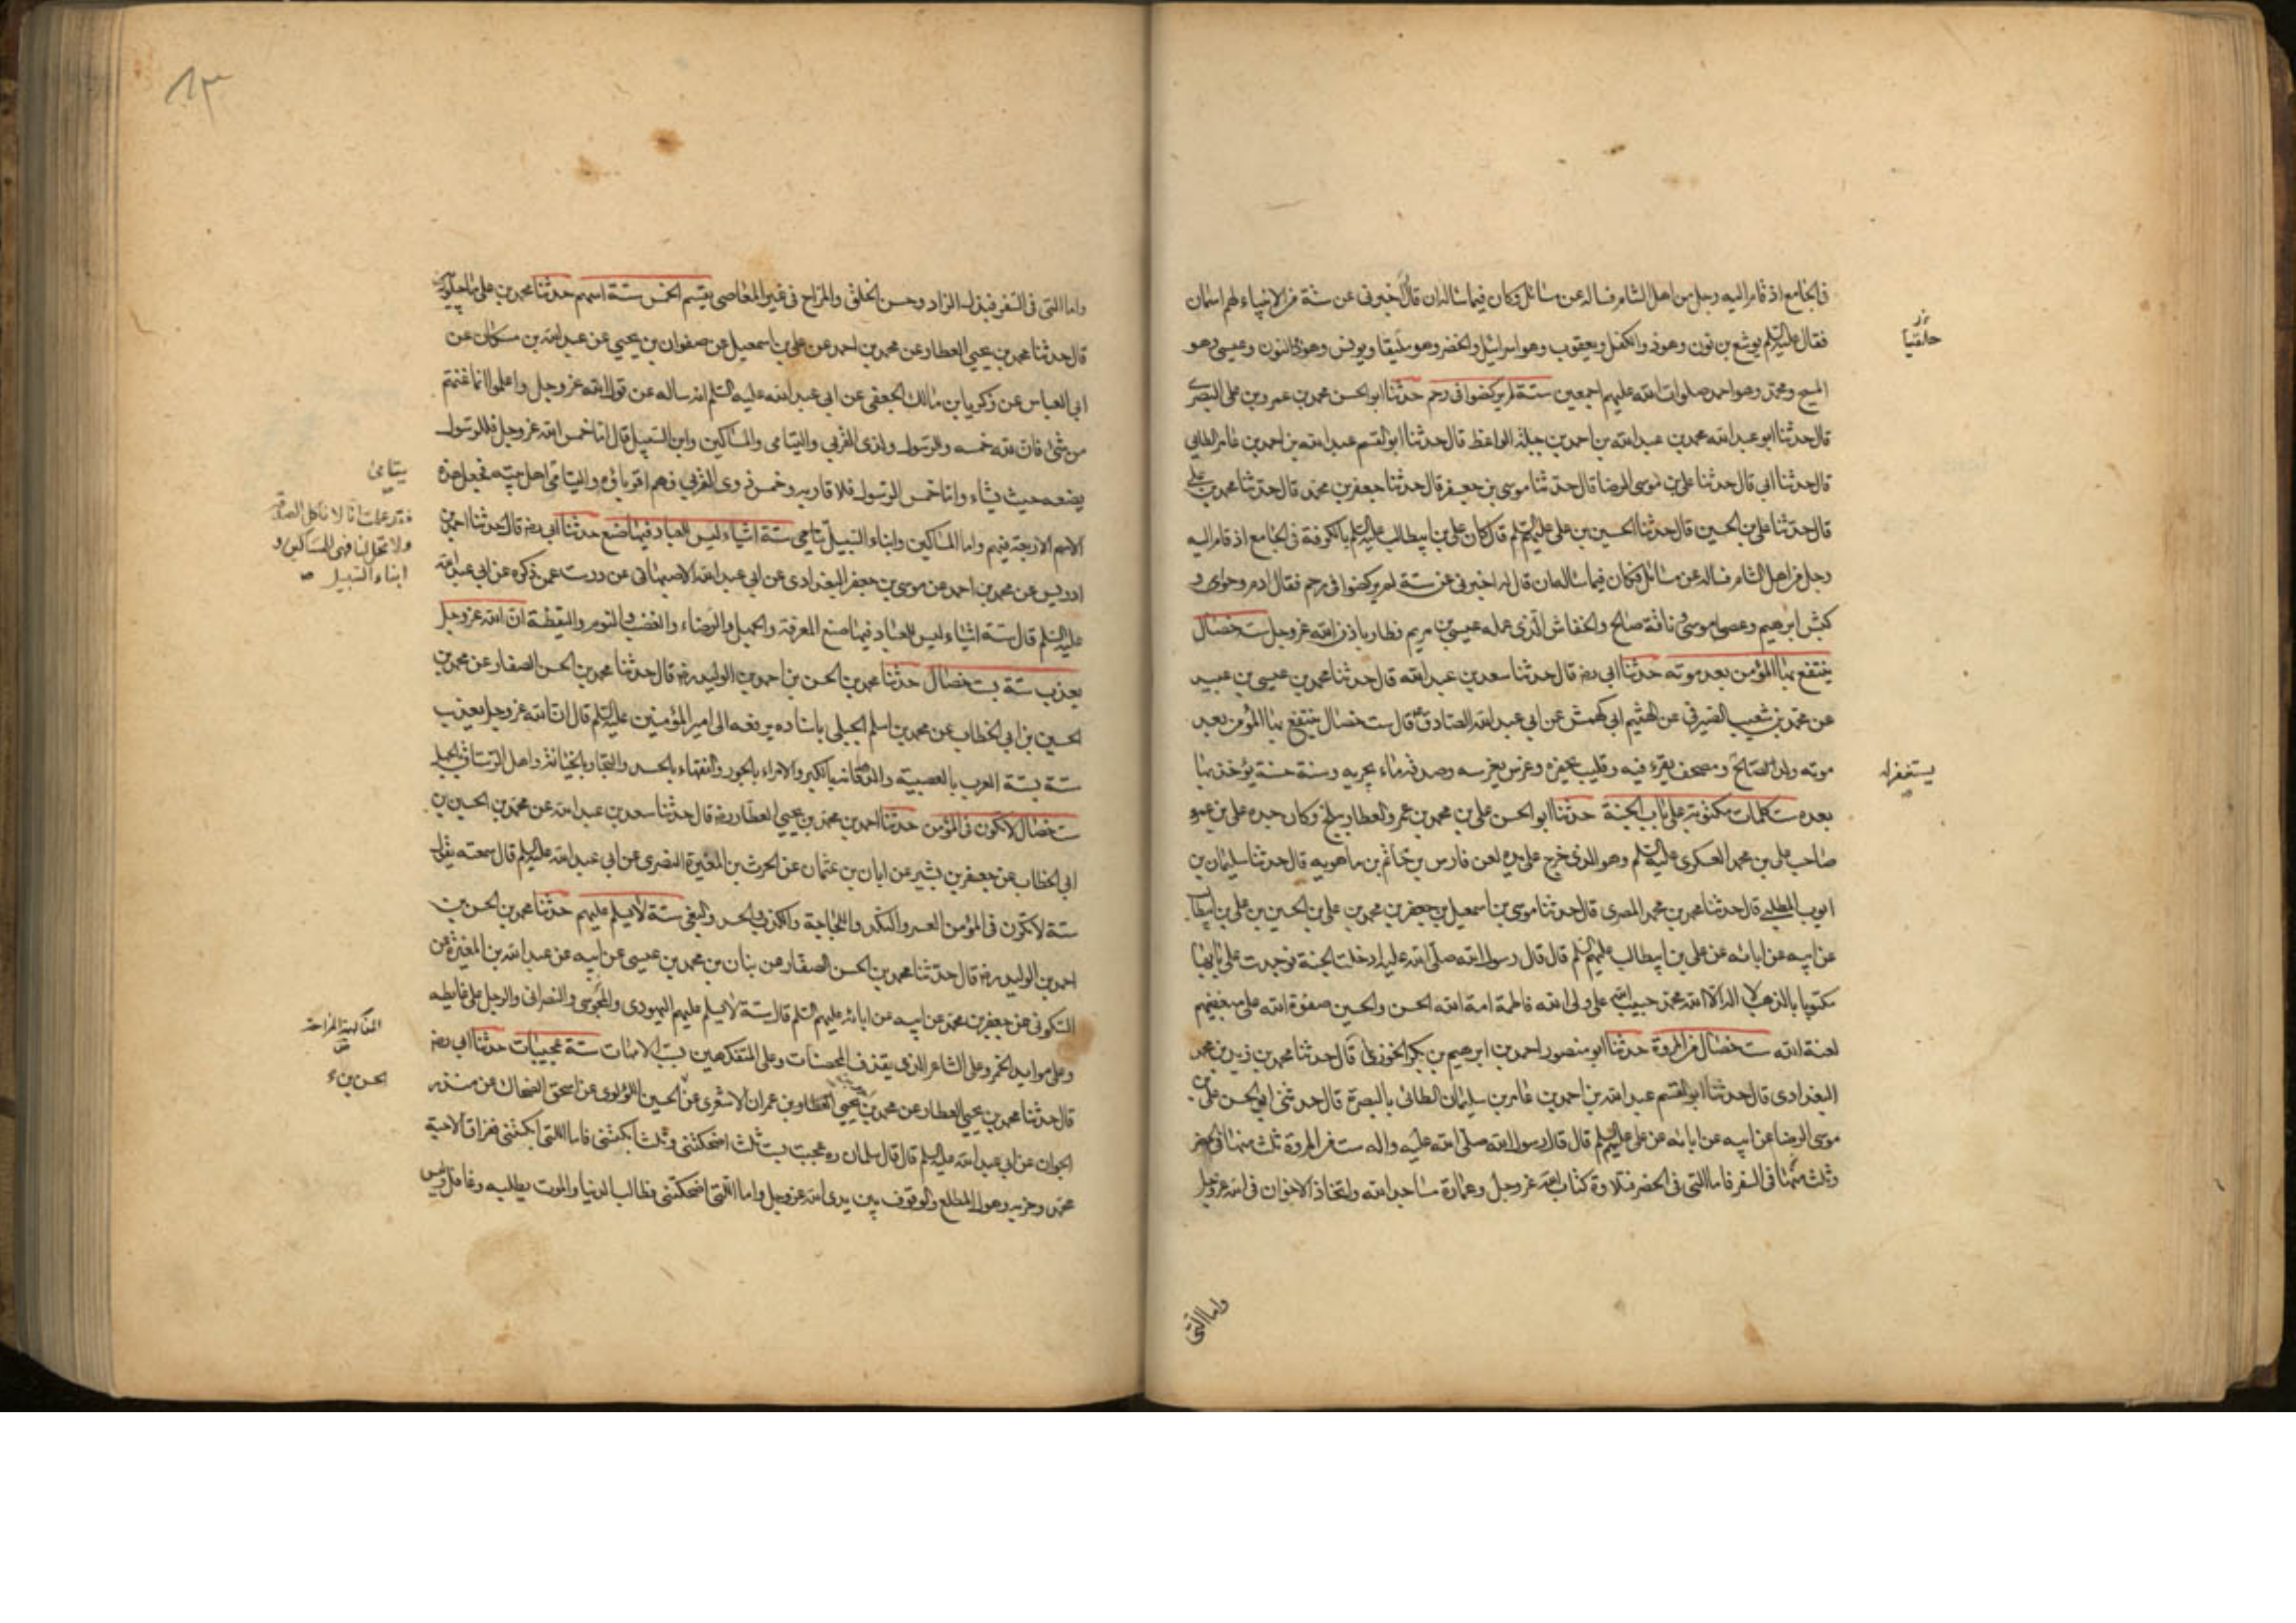 فى الجامع اذ قام اليه رجل من اهل الشام فساله عن مسائل فكان فيما ساله ان قال له اخبرنى عن ستة من الانبياء لهم اسمان
فقال عليه السلم يوشع بن نون وهو ذو الكفل ويعقوب وهو اسرائيل والخضر وهو حليقا ويونس وهو ذوالنون وعيسى وهو
حلقيا
المسيح ومحمد وهو احمد صلوات الله عليهم اجمعين ستة لم يركضوا فى رحم حدثنا ابو الحسن محمد بن عمرو بن على البصرى
قال حدثنا ابو عبد الله محمد بن عبد الله بن احمد بن جبلة الواعظ قال حدثنا ابو القسم عبد الله بن احمد بن عامر الطايى
قال حدثنا ابى قال حدثنا على بن موسى الرضا قال حدثنا موسى بن جعفر قال حدثنا جعفر بن محمد قال حدثنا محمد بن على
قال حدثنا على بن الحسين قال حدثنا الحسين بن على عليهم السلم قال كان على بن ابيطالب عليه السلم بالكوفة فى الجامع اذ قام اليه
رجل من اهل الشام فساله عن مسائل فكان فيما ساله ان قال له اخبرنى عن ستة لم يركضوا فى رحم فقال ادم وحوى و
كبش ابرهيم وعصى موسى وناقة صالح والخفاش الذى عمله عيسى بن مريم فطار باذن الله عز وجل ست خصال
ينتفع بها المؤمن بعد موته حدثنا ابى رضه قال حدثنا سعد بن عبد الله قال حدثنا محمد بن عيسى بن عبيد
عن محمد بن شعيب الصيرفى عن الهثيم ابى كهمش عن ابى عبد الله الصادق قال ست خصال ينتفع بها المؤمن بعد
موته ولد الصالح ومصحف يقرء فيه وقليب يحفره وغرس يغرسه وصدقه ماء يجريه وسنة حسنة يؤخذ بها
يستغفر له
بعده ست كلمات مكتوبة على باب الجنة حدثنا ابو الحسن على بن محمد بن عمرو العطار ببلخ وكان جده على بن عمرو
صاحب على بن محمد العسكرى عليه السلم وهو الذى خرج على يده لعن فارس بن حاتم بن ماهويه قال حدثنا سليمان بن
ايوب المطلبى قال حدثنا محمد بن محمد المصرى قال حدثنا موسى بن اسمعيل بن جعفر بن محمد بن على بن الحسين بن على بن ابيطالب
عن ابيه عن ابائه عن على بن ابيطالب عليهم السلم قال قال رسول الله صلى الله عليه ادخلت الجنة فوجدت على بابها
مكتوبا بالذهب لا اله الا الله محمد حبيب الله على ولى الله فاطمة امة الله الحسن والحسين صفوة الله على مبغضيهم
لعنة الله ست خصال من المروة حدثنا ابو منصور احمد بن ابرهيم بن بكر الخوزى قال حدثنا محمد بن زيد بن محمد
البغدادى قال حدثنا ابو القسم عبد الله بن احمد بن عامر بن سليمان الطائى بالبصرة قال حدثنى ابى الحسن على بن
موسى الرضا عن ابيه عن ابائه عن على عليهم السلم قال قال رسول الله صلى الله عليه واله ست من المروة ثلث منها فى الحضر
وثلث منها فى السفر فاما اللتى فى الحضر فتلاوة كتاب الله عز وجل وعمارة مساجد الله واتخاذ الاخوان فى الله عز وجل
واما اللتى
١٣
واما اللتى فى السفر فبذل الزاد وحسن الخلق والمزاح فى غير المعاصى يقسم الخمس ستة اسهم حدثنا محمد بن على ماجيلويه
قال حدثنا محمد بن يحيى العطار عن محمد بن احمد عن على بن اسمعيل عن صفوان بن يحيى عن عبد الله بن مسكان عن
ابى العباس عن زكريا بن مالك الجعفى عن ابى عبد الله عليه السلم انه ساله عن قول الله عز وجل واعلموا انما غنمتم
من شئ فان لله خمسه وللرسول ولذى القربى واليتامى والمساكين وابن السبيل قال اما خمس الله عز وجل فللرسول
يضعه حيث يشاء واما خمس الرسول فلاقاربه وخمس ذوى القربى فهم اقرباؤه واليتامى اهل بيته فجعل هذه
يتامى
الاسهم الاربعة فيهم واما المساكين وابناء السبيل ستة اشياء ليس للعباد فيها صنع حدثنا ابى رضه قال حدثنا احمد بن
فقد علمت انا لا ناكل الصدقة
ولا تحل لنا فهى للمساكين و
ابناء السبيل
ادريس عن محمد بن احمد عن موسى بن جعفر البغدادى عن ابى عبد الله الاصبهانى عن درست عمن ذكره عن ابى عبد الله
عليه السلم قال ستة اشياء ليس للعباد فيها صنع المعرفة والجهل والرضاء والغضب والنوم واليقظة ان الله عز وجل
يعذب ستة بست خصال حدثنا محمد بن الحسن بن احمد بن الوليد رضه قال حدثنا محمد بن الحسن الصفار عن محمد بن
الحسين بن ابى الخطاب عن محمد بن اسلم الجبلى باسناده يرفعه الى امير المؤمنين عليه السلم قال ان الله عز وجل يعذب
ستة بستة العرب بالعصبية والدهاقنة بالكبر والامراء بالجور والفقهاء بالحسد والتجار بالخيانة واهل الرستاق بالجهل
ست خصال لا تكون فى المؤمن حدثنا احمد بن محمد بن يحيى العطار رضه قال حدثنا سعد بن عبد الله عن محمد بن الحسين بن
ابى الخطاب عن جعفر بن بشير عن ابان بن عثمان عن الحرث بن المغيرة النضرى عن ابى عبد الله عليه السلم قال سمعته يقول
ستة لا تكون فى المؤمن العسر والنكد واللجاجة والكذب والحسد والبغى ستة لا يسلم عليهم حدثنا محمد بن الحسن بن
احمد بن الوليد رضه قال حدثنا محمد بن الحسن الصفار عن بنان بن محمد بن عيسى عن ابيه عن عبد الله بن المغيرة عن
السكونى عن جعفر بن محمد عن ابيه عن ابائه عليهم السلم قال ستة لا يسلم عليهم اليهودى والمجوسى والنصرانى والرجل على غايطه
وعلى موايد الخمر وعلى الشاعر الذى يقذف المحصنات وعلى المتفكهين بسب الامهات ستة عجيبات حدثنا ابى رضه
قال حدثنا محمد بن يحيى العطار عن محمد بن يحيى العطار بن عمران الاشعرى عن الحسين اللؤلوى عن اسحق الضحاك عن منذر
الحسن بن
الجوان عن ابى عبد الله عليه السلم قال قال سلمان ره عجبت بست ثلث اضحكتنى وثلث ابكتنى فاما اللتى ابكتنى ففراق الاحبة
محمد وحزبه وهول المطلع والوقوف بين يدى الله عز وجل واما اللتى اضحكتنى فطالب الدنيا والموت يطلبه وغافل وليس